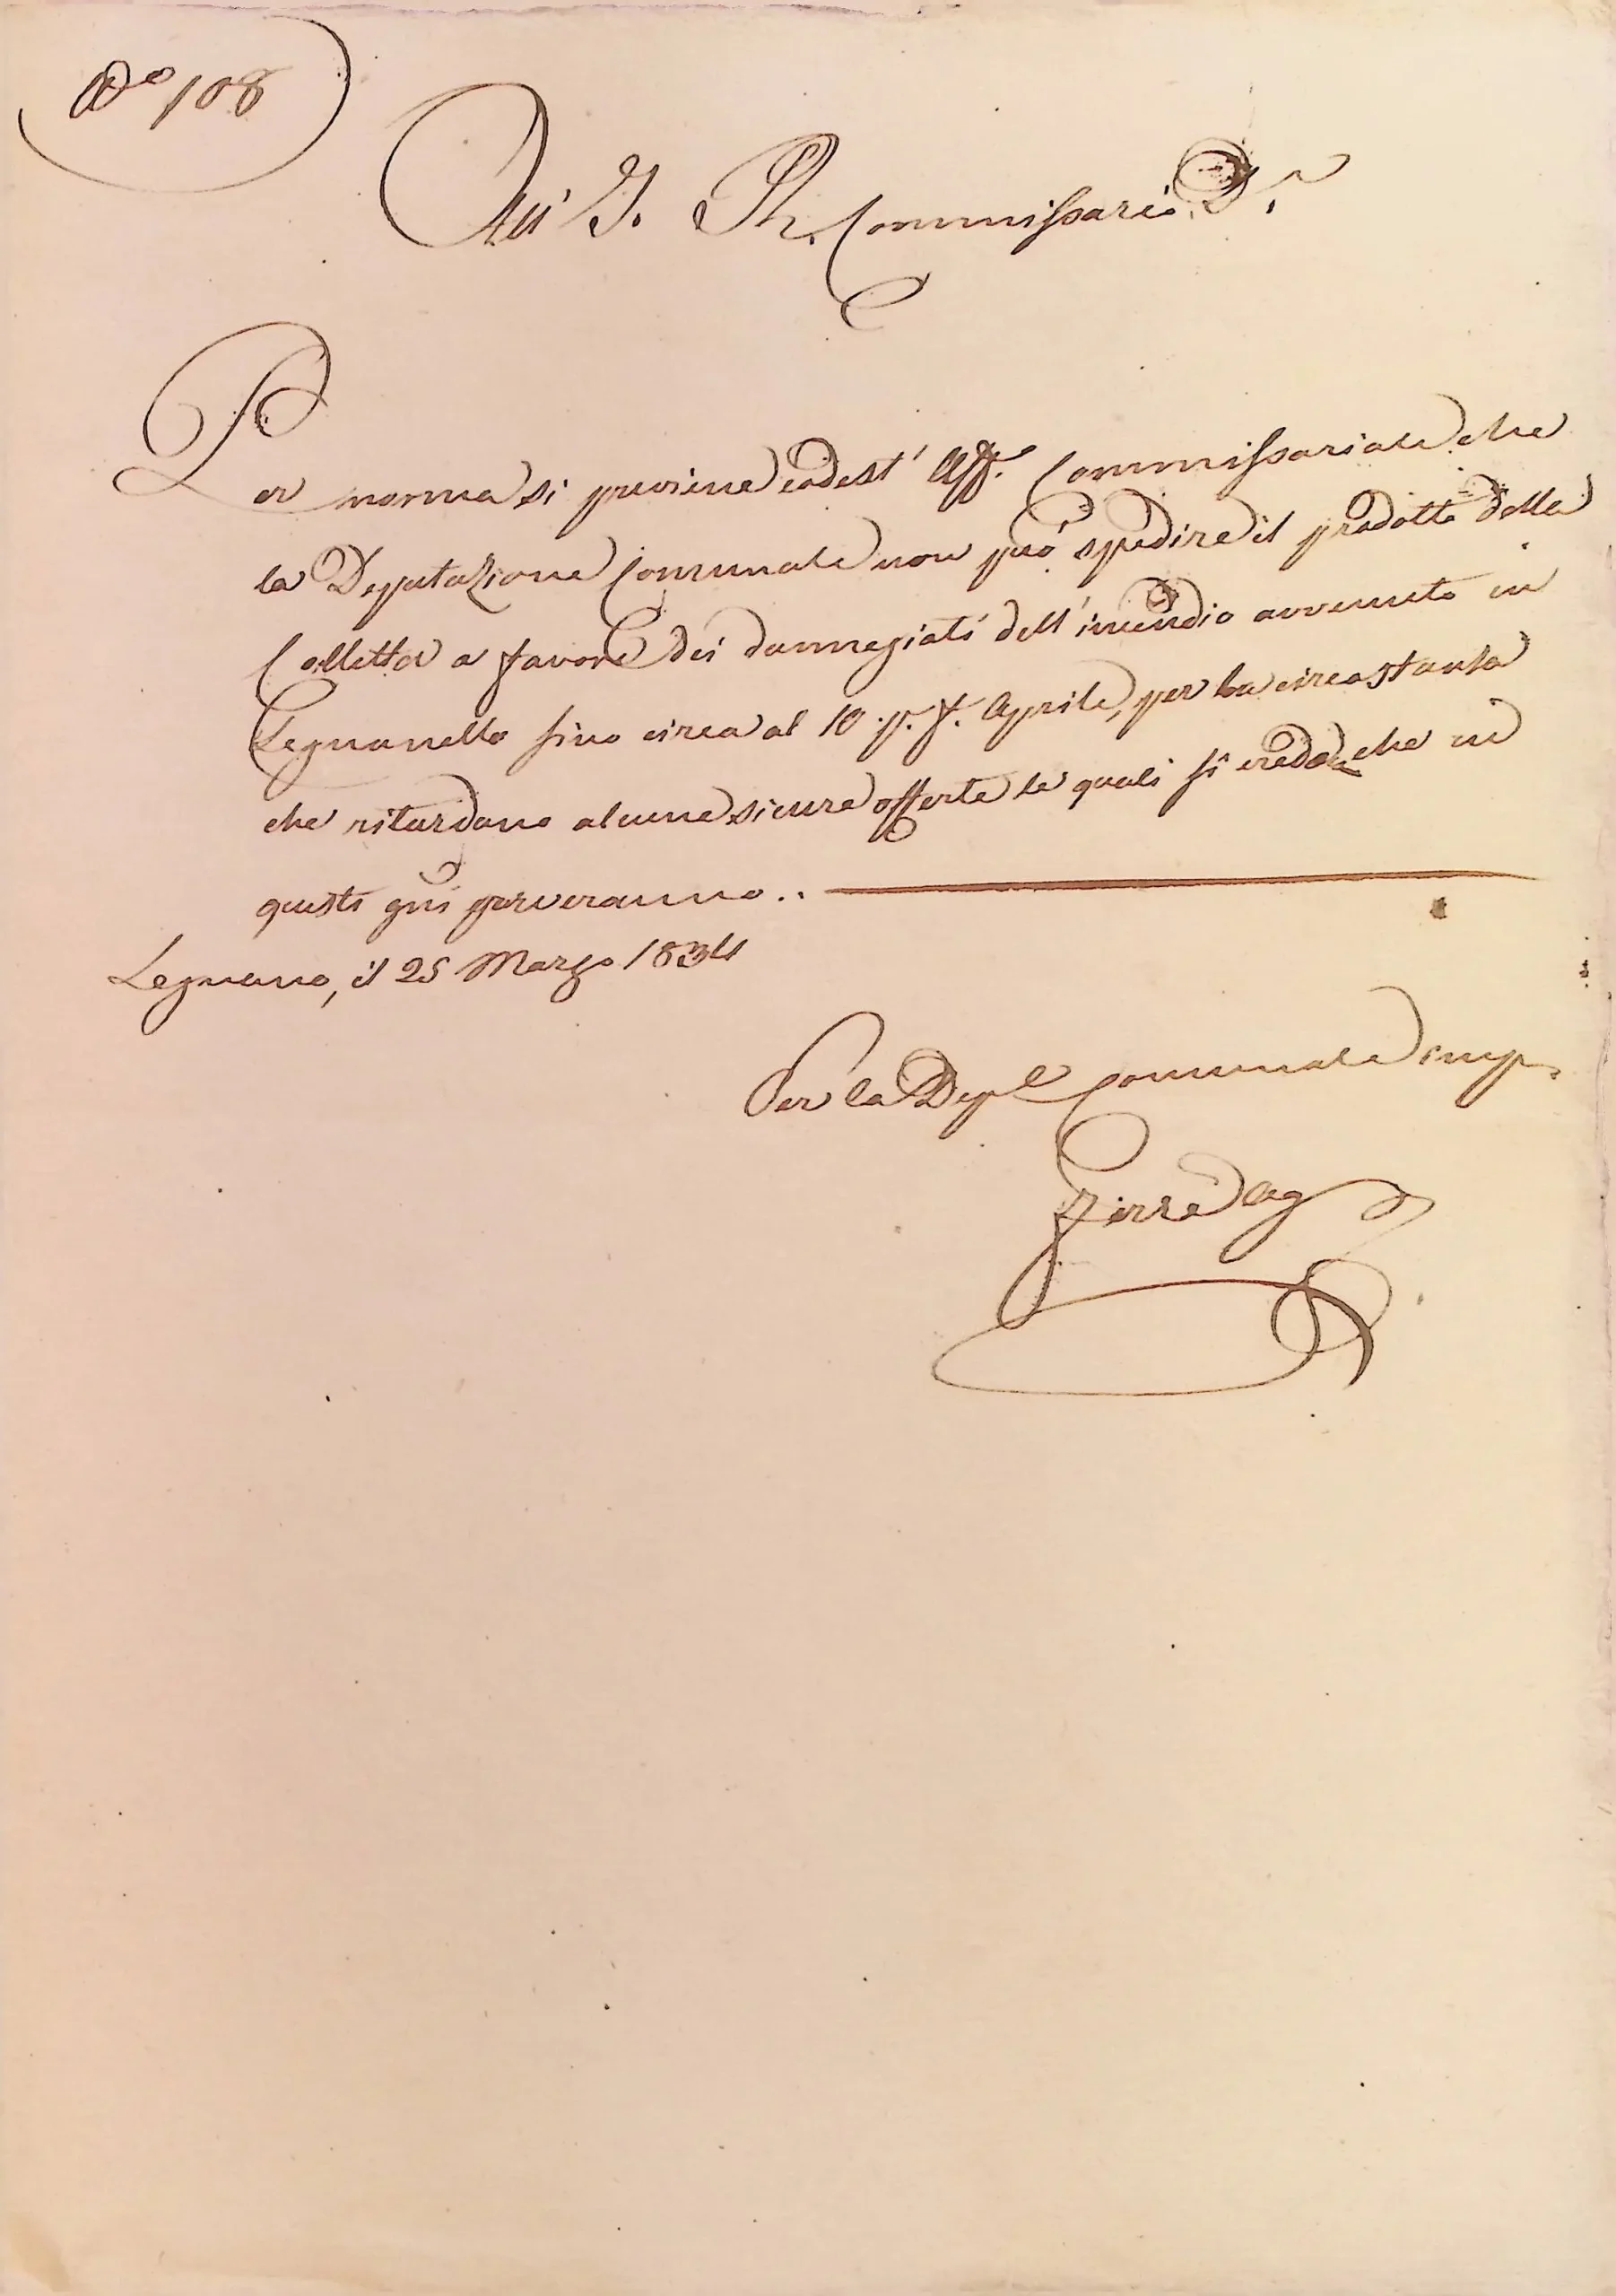 N.º 108
All' I. R. Commissario D.
Per norma si previene codest' Uff. Commissariale che
la Deputazione Comunale non può spedire il prodotto della
Colletta a favore dei dannegiati dell' incendio avvenuto in
Legnanello sino circa al 10 p. f. Aprile, per la circostanza
che ritardano alcune sicure offerte le quali si crede che in
questi gni perveranno..
Legnano, il 25 Marzo 1834
Per la Dep.e Comunale imp.
Ag